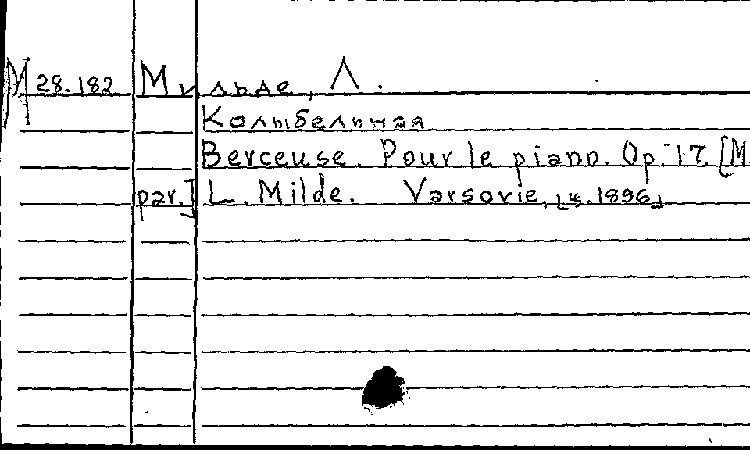 М 28.182 Мильде, Л.
Колыбельная
Berceuse. Pour le piano. Op. 17. [M
par.] L. Milde. Varsovie, [ц. 1896]